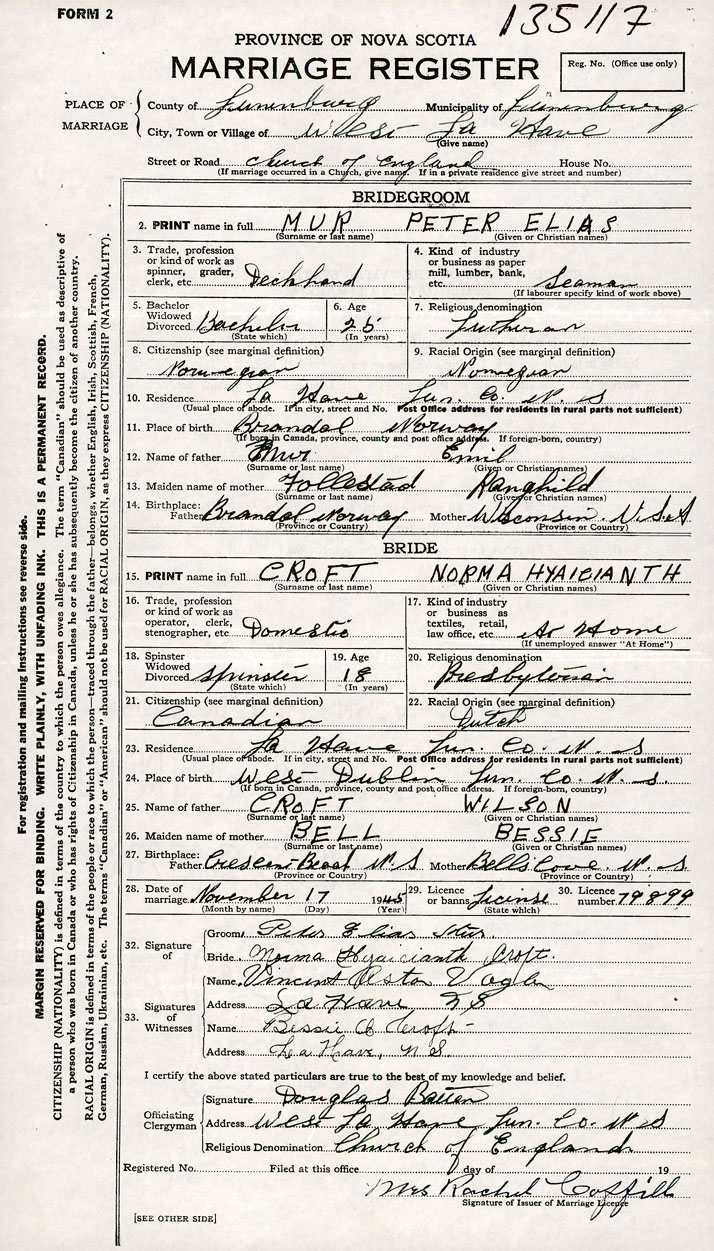 FORM 2
135117
PROVINCE OF NOVA SCOTIA
MARRIAGE REGISTER
Reg. No. (Office use only)
PLACE OF MARRIAGE
County of Lunenburg Municipality of Lunenburg
City, Town or Village of West La Have
(Give name)
Street or Road Church of England House No.
(If marriage occurred in a Church, give name. If in a private residence give street and number)
BRIDEGROOM
2. PRINT name in full MUR PETER ELIAS
(Surname or last name) (Given or Christian names)
3. Trade, profession or kind of work as spinner, grader, clerk, etc. Deckhand
4. Kind of industry or business as paper mill, lumber, bank, etc. Seaman
(If labourer specify kind of work above)
5. Bachelor Widowed Divorced Bachelor
(State which)
6. Age 25
(In years)
7. Religious denomination Lutheran
8. Citizenship (see marginal definition) Norwegian
9. Racial Origin (see marginal definition) Norwegian
10. Residence La Have Lun. Co. N. S
(Usual place of abode. If in city, street and No. Post Office address for residents in rural parts not sufficient)
11. Place of birth Brandal Norway
(If born in Canada, province, county and post office address. If foreign-born, country)
12. Name of father Mur Emil
(Surname or last name) (Given or Christian names)
13. Maiden name of mother Follestad Ranghild
(Surname or last name) (Given or Christian names)
14. Birthplace: Father Brandal Norway Mother Wisconsin. U.S.A
(Province or Country) (Province or Country)
BRIDE
15. PRINT name in full CROFT NORMA HYAICIANTH
(Surname or last name) (Given or Christian names)
16. Trade, profession or kind of work as operator, clerk, stenographer, etc. Domestic
17. Kind of industry or business as textiles, retail, law office, etc. At Home
(If unemployed answer "At Home")
18. Spinster Widowed Divorced Spinster
(State which)
19. Age 18
(In years)
20. Religious denomination Presbyterian
21. Citizenship (see marginal definition) Canadian
22. Racial Origin (see marginal definition) Dutch
23. Residence La Have Lun. Co. N. S
(Usual place of abode. If in city, street and No. Post Office address for residents in rural parts not sufficient)
24. Place of birth West Dublin Lun. Co. N. S.
(If born in Canada, province, county and post office address. If foreign-born, country)
25. Name of father CROFT WILSON
(Surname or last name) (Given or Christian names)
26. Maiden name of mother BELL BESSIE
(Surname or last name) (Given or Christian names)
27. Birthplace: Father N. S Mother Bells Cove. N. S
(Province or Country) (Province or Country)
28. Date of marriage November 17 1945
(Month by name) (Day) (Year)
29. Licence or banns License
(State which)
30. Licence number 79899
32. Signature of
Groom Peter Elias Mur
Bride Norma Hyaicianth Croft.
33. Signatures of Witnesses
Name Vincent Vogler
Address La Have NS
Name Bessie Croft
Address La Have, N.S.
I certify the above stated particulars are true to the best of my knowledge and belief.
Officiating Clergyman
Signature Douglas Batten
Address West La Have Lun. Co. N. S
Religious Denomination Church of England
Registered No. Filed at this office day of 19
Mrs Rachel Coffill
Signature of Issuer of Marriage Licence
[SEE OTHER SIDE]
For registration and mailing instructions see reverse side.
MARGIN RESERVED FOR BINDING. WRITE PLAINLY, WITH UNFADING INK. THIS IS A PERMANENT RECORD.
CITIZENSHIP (NATIONALITY) is defined in terms of the country to which the person owes allegiance. The term "Canadian" should be used as descriptive of
a person who was born in Canada or who has rights of Citizenship in Canada, unless he or she has subsequently become the citizen of another country.
RACIAL ORIGIN is defined in terms of the people or race to which the person—traced through the father—belongs, whether English, Irish, Scottish, French,
German, Russian, Ukrainian, etc. The terms "Canadian" or "American" should not be used for RACIAL ORIGIN, as they express CITIZENSHIP (NATIONALITY).